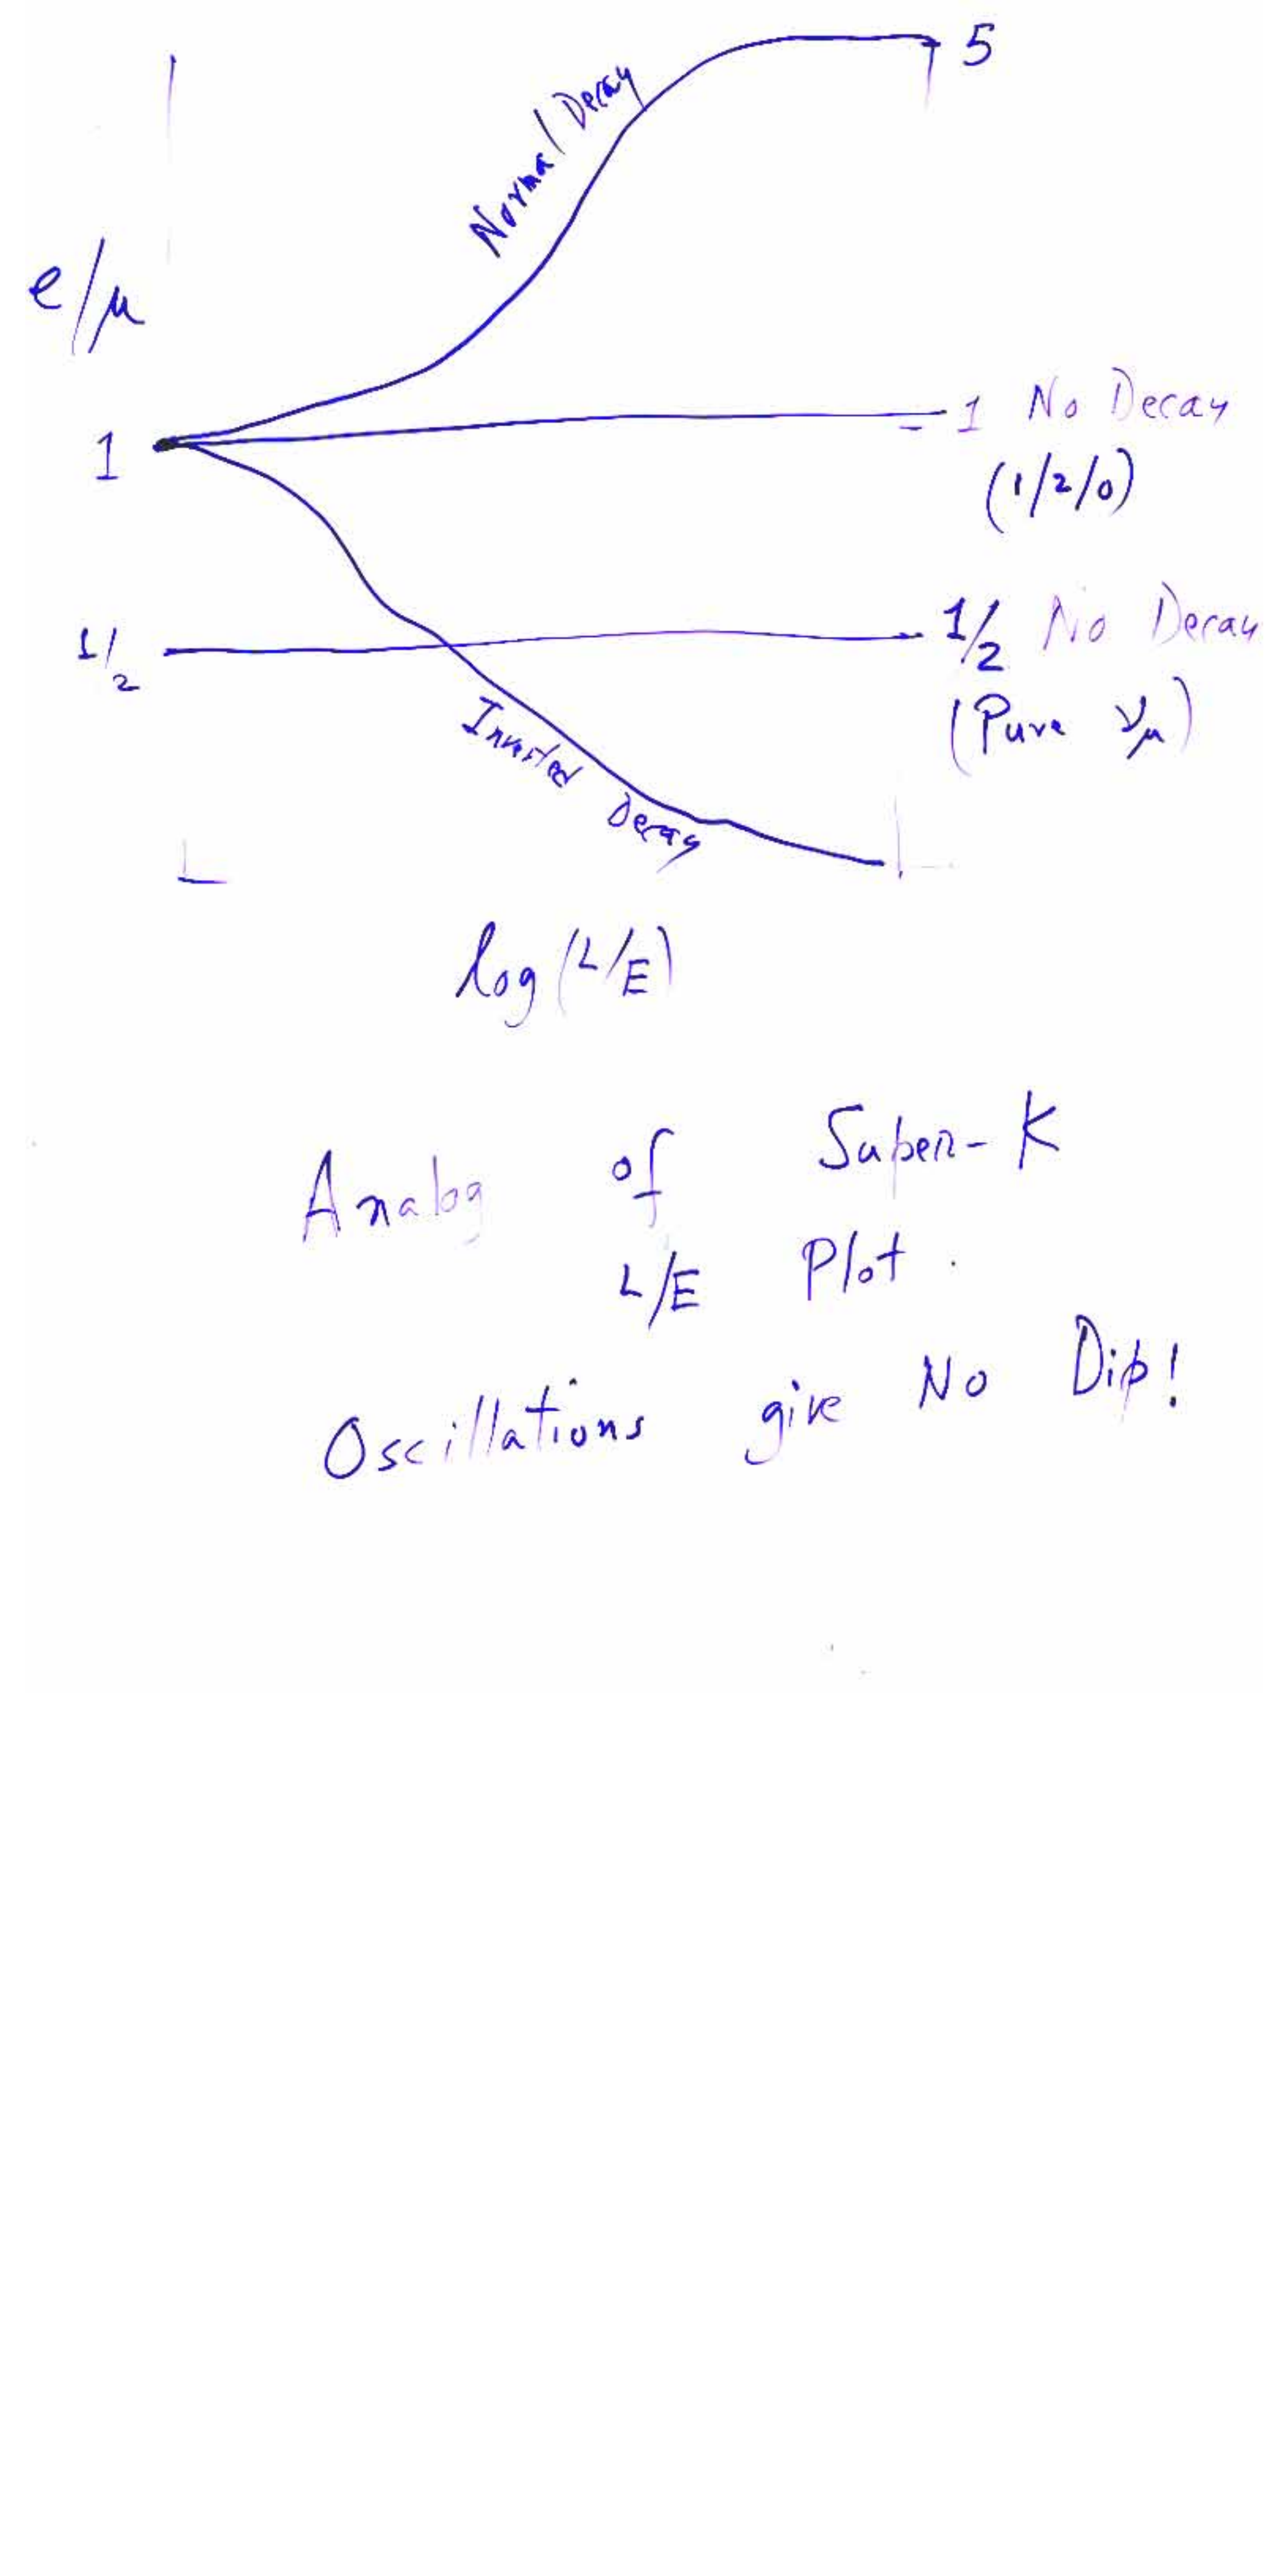 5
Normal Decay
e/μ
1 No Decay
1
(1/2/0)
1/2
1/2 No Decay
(Pure νμ)
Inverted Decay
log (L/E)
Analog of Super-K
L/E Plot.
Oscillations give No Dip!